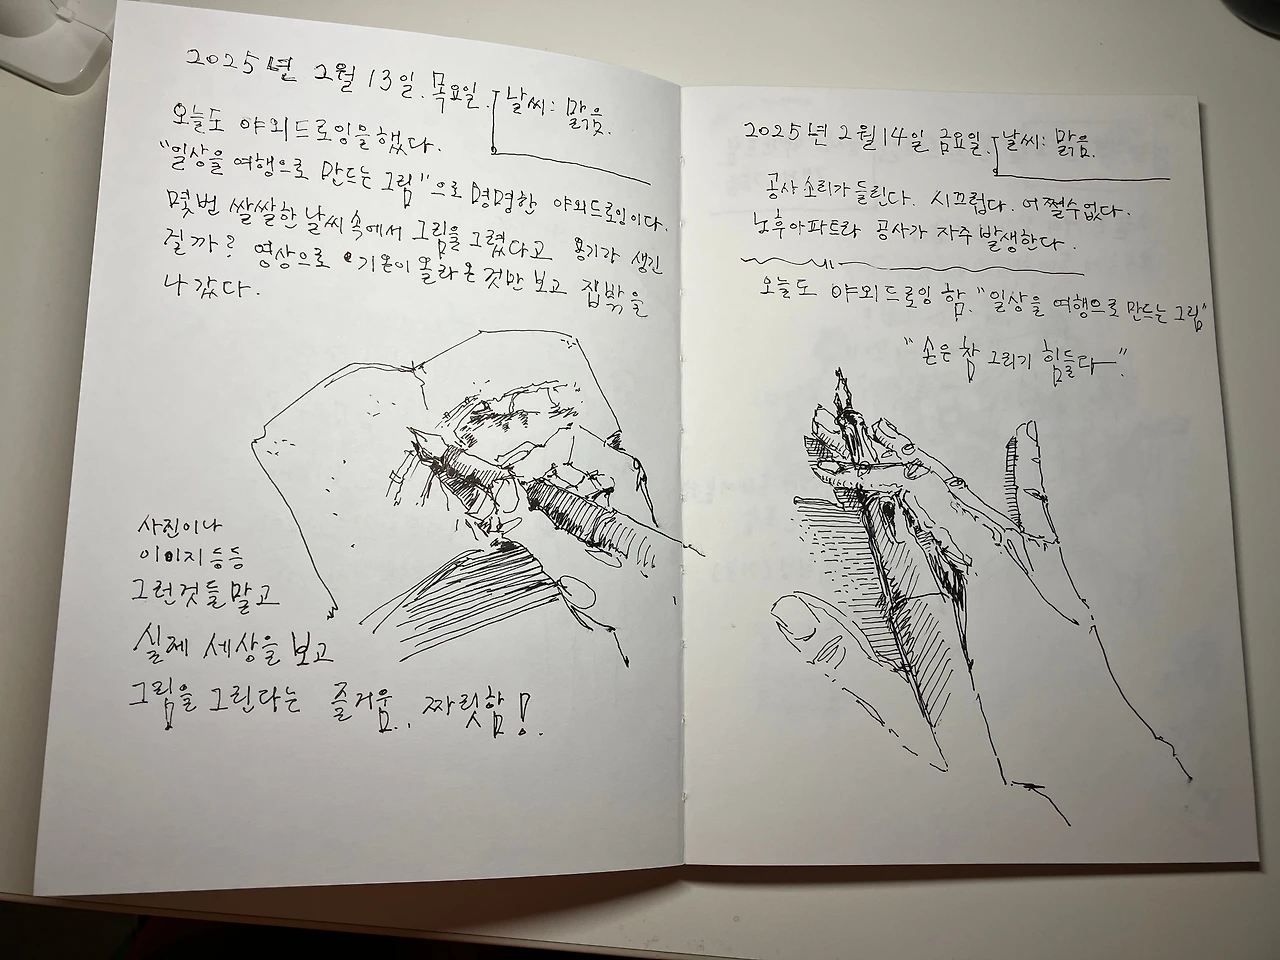 2025년 2월 13일. 목요일. 날씨: 맑음.
오늘도 야외드로잉을 했다.
"일상을 여행으로 만드는 그림"으로 명명한 야외드로잉이다.
몇번 쌀쌀한 날씨 속에서 그림을 그렸다고 용기가 생긴
걸까? 영상으로 기온이 올라온 것만 보고 집밖을
나갔다.
사진이나
이미지 등등
그런것들 말고
실제 세상을 보고
그림을 그린다는 즐거움.. 짜릿함!
2025년 2월 14일 금요일. 날씨: 맑음.
공사 소리가 들린다. 시끄럽다. 어쩔수없다.
노후아파트라 공사가 자주 발생한다.
오늘도 야외드로잉 함. "일상을 여행으로 만드는 그림"
"손은 참 그리기 힘들다—"